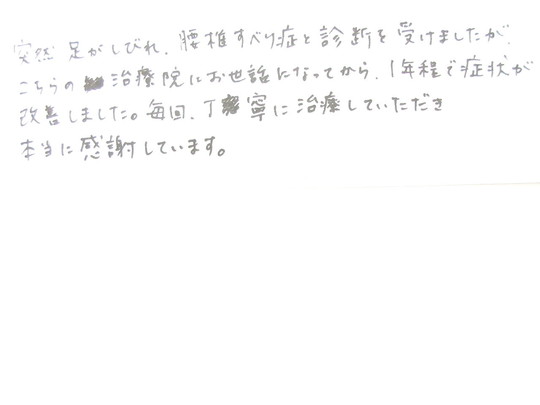 突然足がしびれ、腰椎すべり症と診断を受けましたが、
こちらの治療院にお世話になってから、1年程で症状が
改善しました。毎回、丁寧に治療していただき
本当に感謝しています。